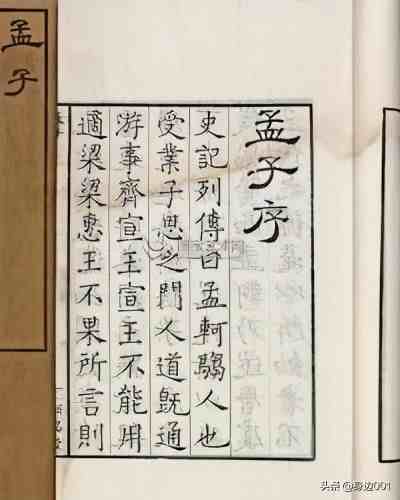 孟子序
史記列傳曰孟軻騶人也
受業子思之門人道既通
游事齊宣王宣王不能用
適梁梁惠王不果所言則
孟子
头条 @身边001